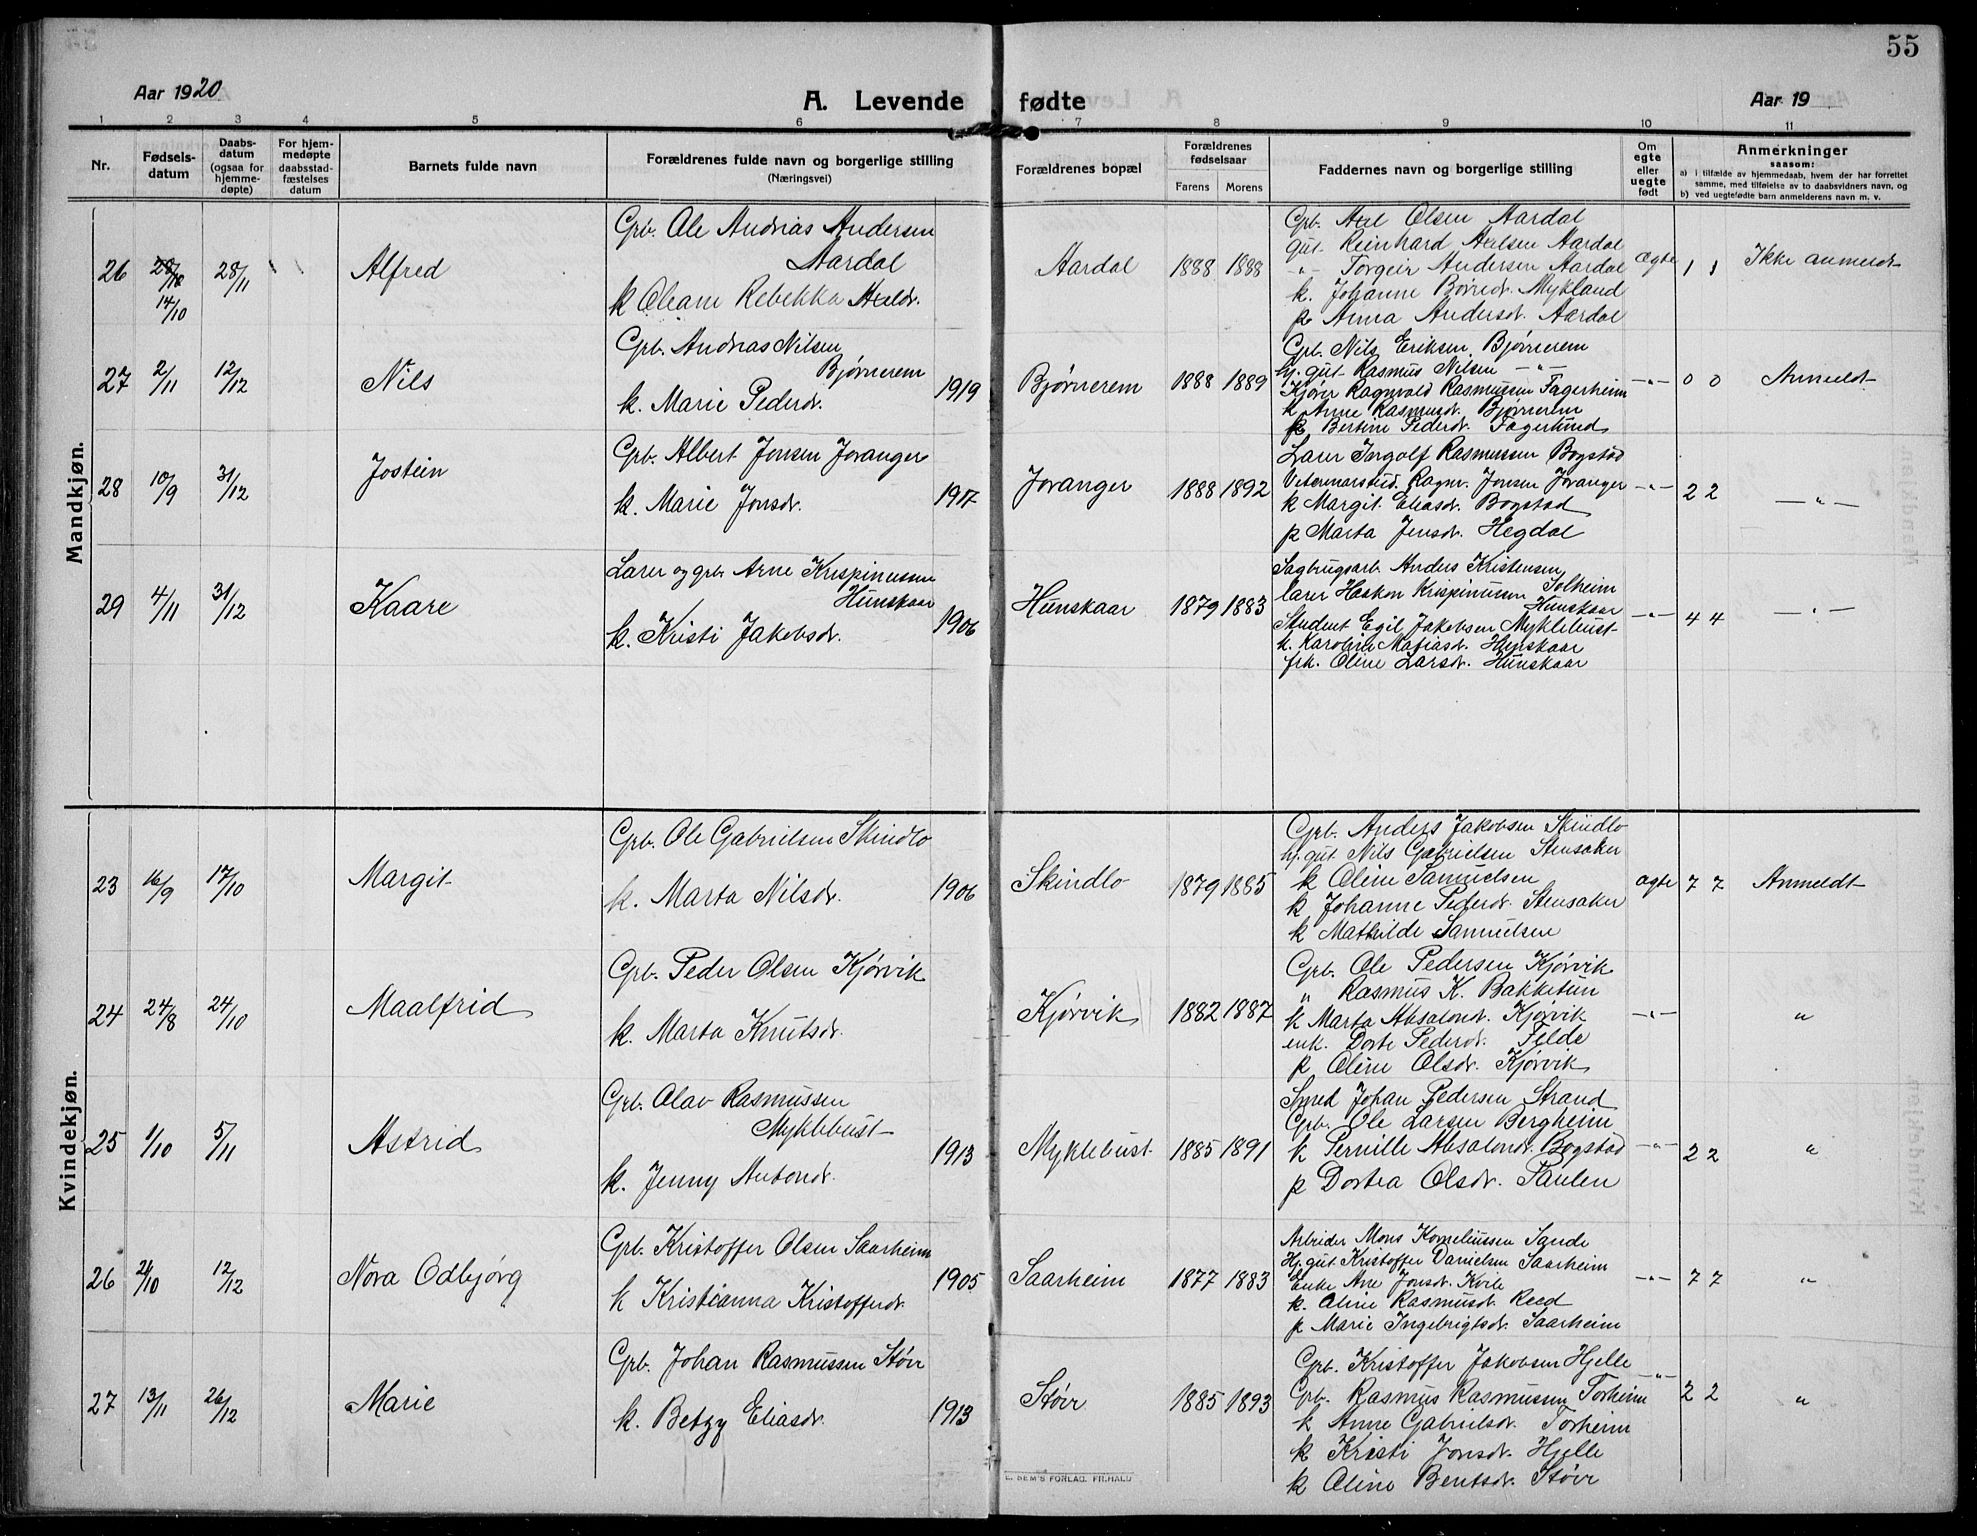 55
Aar 1920
A. Levende fødte
Aar 19
1 2 3 4 5 6 7 8 9 10 11
Nr.
Fødselsdatum
Daabsdatum (ogsaa for hjemmedøpte)
For hjemmedøpte daabsstadfæstelses datum
Barnets fulde navn
Forældrenes fulde navn og borgerlige stilling
(Næringsvei)
Forældrenes bopæl
Forældrenes fødselsaar
Farens Morens
Faddernes navn og borgerlige stilling
Om egte eller uegte født
Anmerkninger
saasom:
a) i tilfælde av hjemmedaab, hvem der har forrettet samme, med tilføielse av to daabsvidners navn, og
b) ved uegtefødte barn anmelderens navn m. v.
Mandkjøn.
26 14/10 28/11 Alfred
Grb. Ole Andrias Andersen
Aardal
k Oleane Rebekka Axeldr.
Aardal 1888 1888
Grb. Axel Olsen Aardal
gut. Reinhard Axelsen Aardal
-"- Torgeir Andersen Aardal
k. Johanne Børredr. Mykland
p Anna Andersdr. Aardal
Ægte 1 1 Ikke anmeldt
27 2/11 12/12 Nils
Grb. Andrias Nilsen
Bjørnerem
k. Marie Pedersdr. 1919
Bjørnerem 1888 1889
Grb. Nils Eriksen Bjørnerem
hj. gut Rasmus Nilsen -"-
Kjører Ragnvald Rasmussen Fagerheim
k Anne Rasmusdr. Bjørnerem
p Bertine Pedersdr. Fagerlund
-"- 0 0 Anmeldt
28 10/9 31/12 Jostein
Grb. Albert Jonsen Joranger
k. Marie Jonsdr. 1917
Joranger 1888 1892
Lærer Ingolf Rasmussen Bogstad
Veterinærstud. Ragnv. Jonsen Joranger
k Margit Eliasdr. Bogstad
p Marta Jensdr. Hegdal
-"- 2 2 -"-
29 4/11 31/12 Kaare
Lærer og grb. Arne Krispinussen
Hunskaar
k. Kristi Jakobsdr. 1906
Hunskaar 1879 1883
Sagbrugsarb. Anders Kristensen
Solheim
lærer Haakon Krispinussen
Hunskaar
Student Egil Jakobsen Myklebust
k. Karoline Matiasdr. Hunskaar
frk. Oline Larsdr. Hunskaar
-"- 4 4 -"-
Kvindekjøn.
23 16/9 17/10 Margit
Grb. Ole Gabrielsen Skindlo
k. Marta Nilsdr. 1906
Skindlo 1879 1885
Grb. Anders Jakobsen Skindlo
hj. gut Nils Gabrielsen Stensaker
k Oline Samuelsen
k Johanne Pedersdr. Stensaker
k Mathilde Samuelsen
ægte 7 7 Anmeldt
24 24/8 24/10 Maalfrid
Grb. Peder Olsen Kjørvik
k. Marta Knutsdr.
Kjørvik 1882 1887
Grb. Ole Pedersen Kjørvik
" Rasmus K. Bakketun
k Marta Absalonsd. Kjørvik
enk. Dorte Pedersdr. Felde
p Oline Olsdr. Kjørvik
-"- "
25 1/10 5/11 Astrid
Grb. Olav Rasmussen
Myklebust
k. Jenny Antonsdr. 1913
Myklebust 1885 1891
Smed Johan Pedersen Strand
Grb. Ole Larsen Bergheim
k Pernille Absalonsdr. Bogstad
p Dortea Olsdr. Paulen
-"- 2 2 "
26 21/10 12/12 Nora Odbjørg
Grb. Kristoffer Olsen Saarheim
k Kristianna Kristoffersdr. 1905
Saarheim 1877 1883
Arbeider Mons Korneliussen Sande
Hj. gut Kristoffer Danielsen Saarheim
Enke Ane Jonsdr. Kvile
k. Oline Rasmusdr. Reed
p Marie Ingebrigtsdr. Saarheim
-"- 7 7 "
27 13/11 26/12 Marie
Grb. Johan Rasmussen Støve
k. Betzy Eliasdr. 1913
Støve 1885 1893
Grb. Kristoffer Jakobsen Hjelle
Grb. Rasmus Rasmussen Torheim
k Anne Gabrielsdr. Torheim
k Kristi Jonsdr. Hjelle
k Oline Bentsdr. Støve
-"- 2 2 "
SEM'S FORLAG. FR.HALD